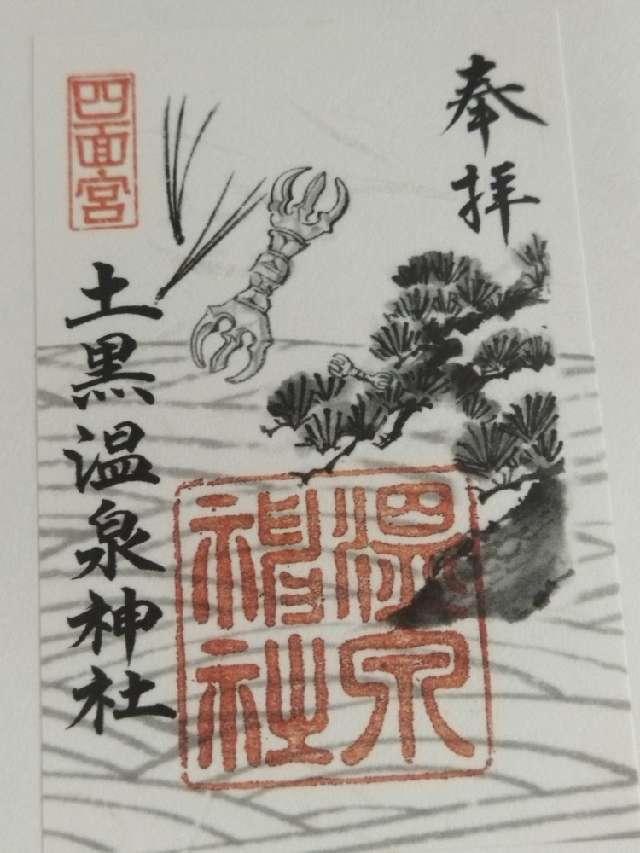 奉拝
四面宮
土黒温泉神社
温泉
神社